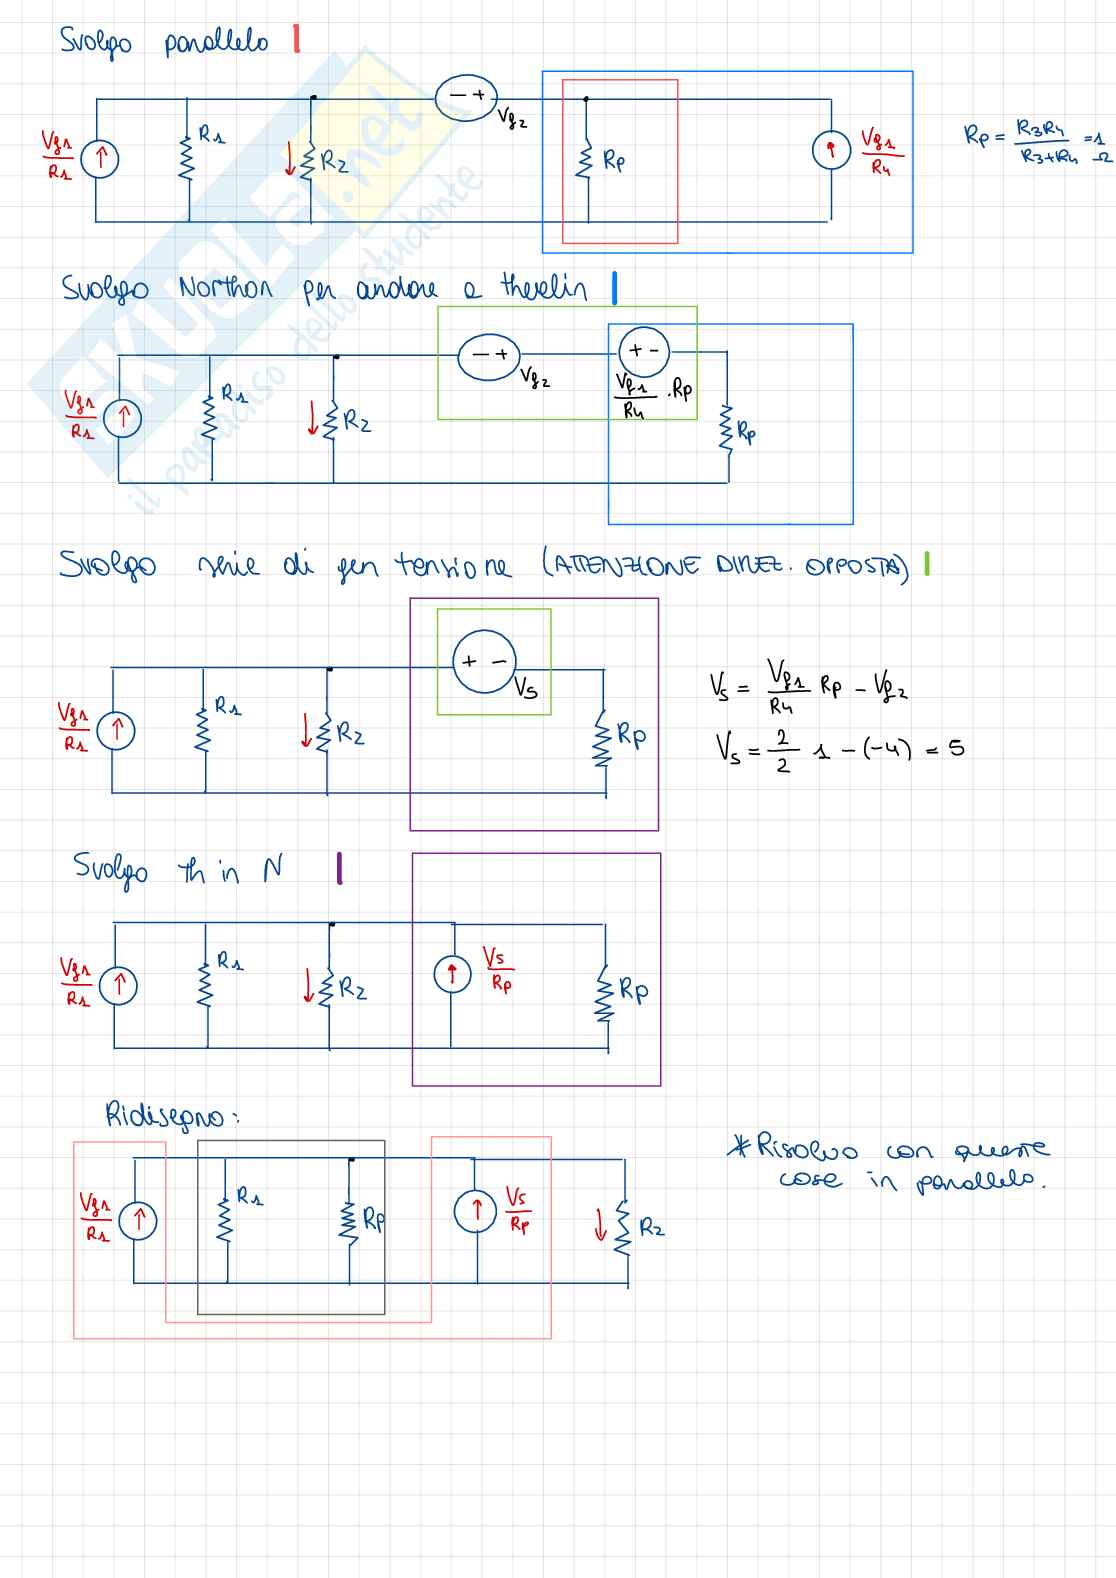 Svolgo parallelo
Vg1/R1 R1 R2 - + Vg2 Rp Vg1/R4 Rp = R3R4/R3+R4 = 1 Ω
Svolgo Northon per andare a thevelin
Vg1/R1 R1 R2 - + Vg2 + - Vg1/R4 . Rp Rp
Svolgo serie di gen tensione (ATTENZIONE DIREZ. OPPOSTA)
Vg1/R1 R1 R2 + - Vs Rp
Vs = Vg1/R4 Rp - Vg2
Vs = 2/2 1 - (-4) = 5
Svolgo th in N
Vg1/R1 R1 R2 Vs/Rp Rp
Ridisegno:
Vg1/R1 R1 Rp Vs/Rp R2
*Risolvo con queste
cose in parallelo.
SKUOLA.net
il paradiso dello studente